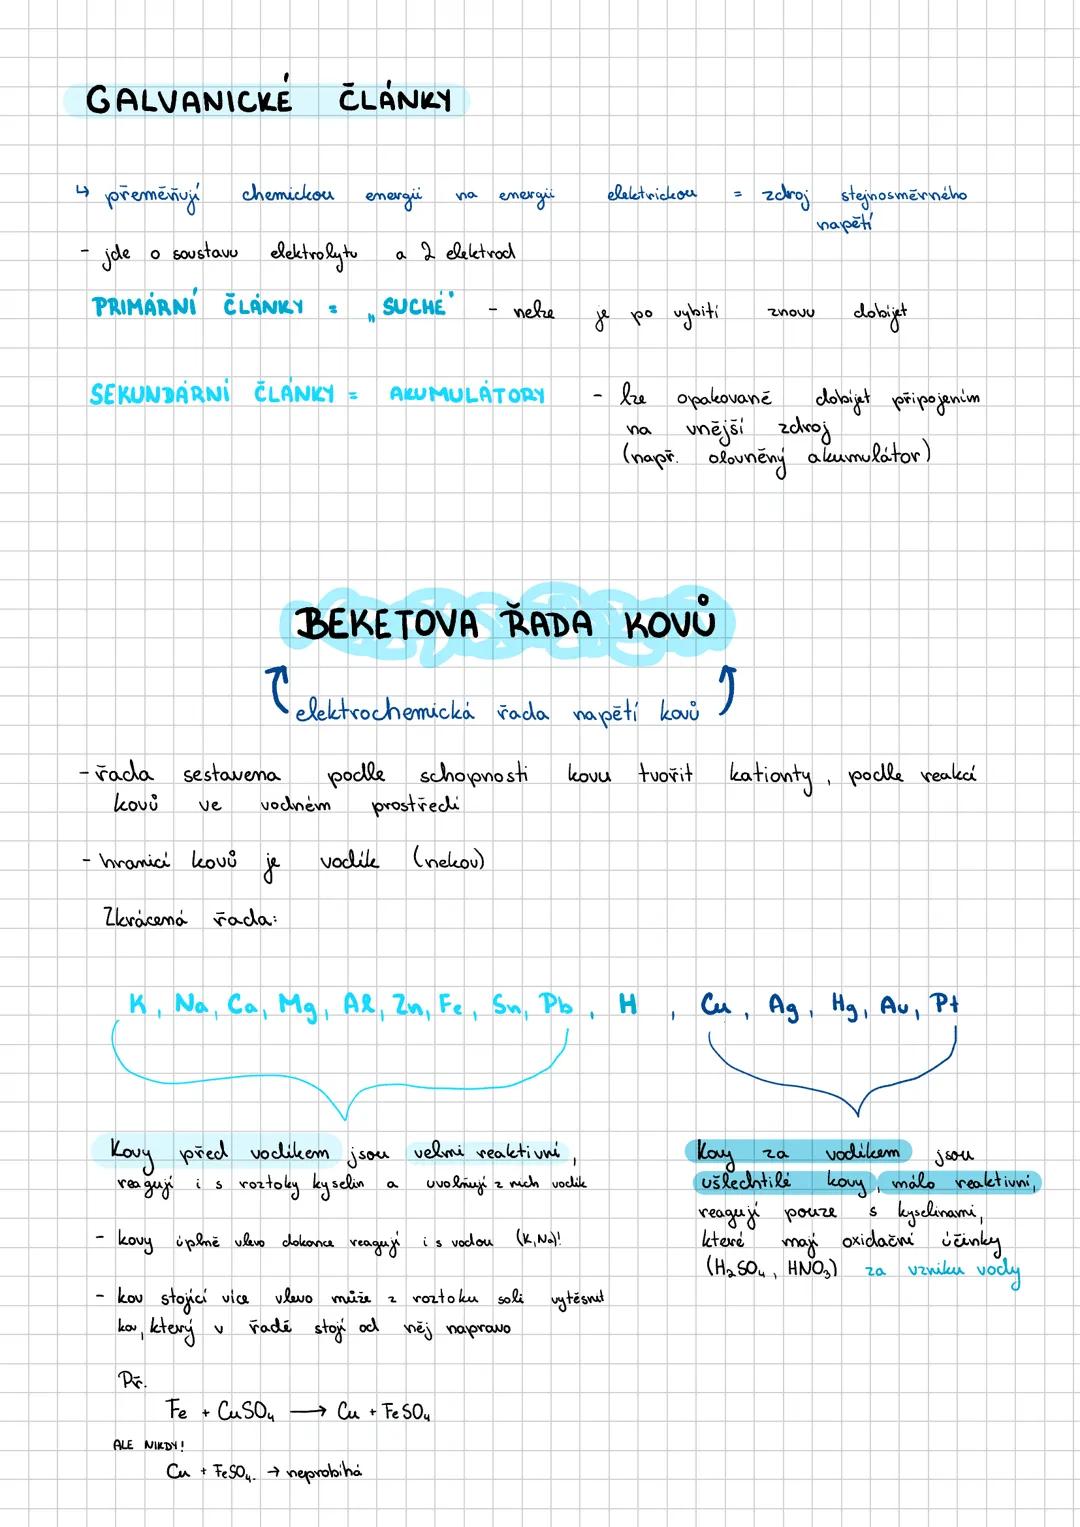 GALVANICKÉ ČLÁNKY
↳ přeměňují chemickou energii na energii elektrickou = zdroj stejnosměrného
napětí
- jde o soustavu elektrolytu a 2 elektrod
PRIMÁRNÍ ČLÁNKY = „SUCHÉ" - nelze je po vybití znovu dobíjet
SEKUNDÁRNÍ ČLÁNKY = AKUMULÁTORY - lze opakovaně dobíjet připojením
na vnější zdroj
(např. olověný akumulátor)
BEKETOVA ŘADA KOVŮ
elektrochemická řada napětí kovů
- řada sestavena podle schopnosti kovu tvořit kationty, podle reakcí
kovů ve vodném prostředí
- hranicí kovů je vodík (nekov)
Zkrácená řada:
K, Na, Ca, Mg, Al, Zn, Fe, Sn, Pb, H, Cu, Ag, Hg, Au, Pt
Kovy před vodíkem jsou velmi reaktivní,
reagují i s roztoky kyselin a uvolňují z nich vodík
- kovy úplně vlevo dokonce reagují i s vodou (K, Na)!
- kov stojící více vlevo může z roztoku soli vytěsnit
kov, který v řadě stojí od něj napravo
Př.
Fe + CuSO₄ → Cu + FeSO₄
ALE NIKDY!
Cu + FeSO₄ → neprobíhá
Kovy za vodíkem jsou
ušlechtilé kovy, málo reaktivní,
reagují pouze s kyselinami,
které mají oxidační účinky
(H₂SO₄, HNO₃) za vzniku vody